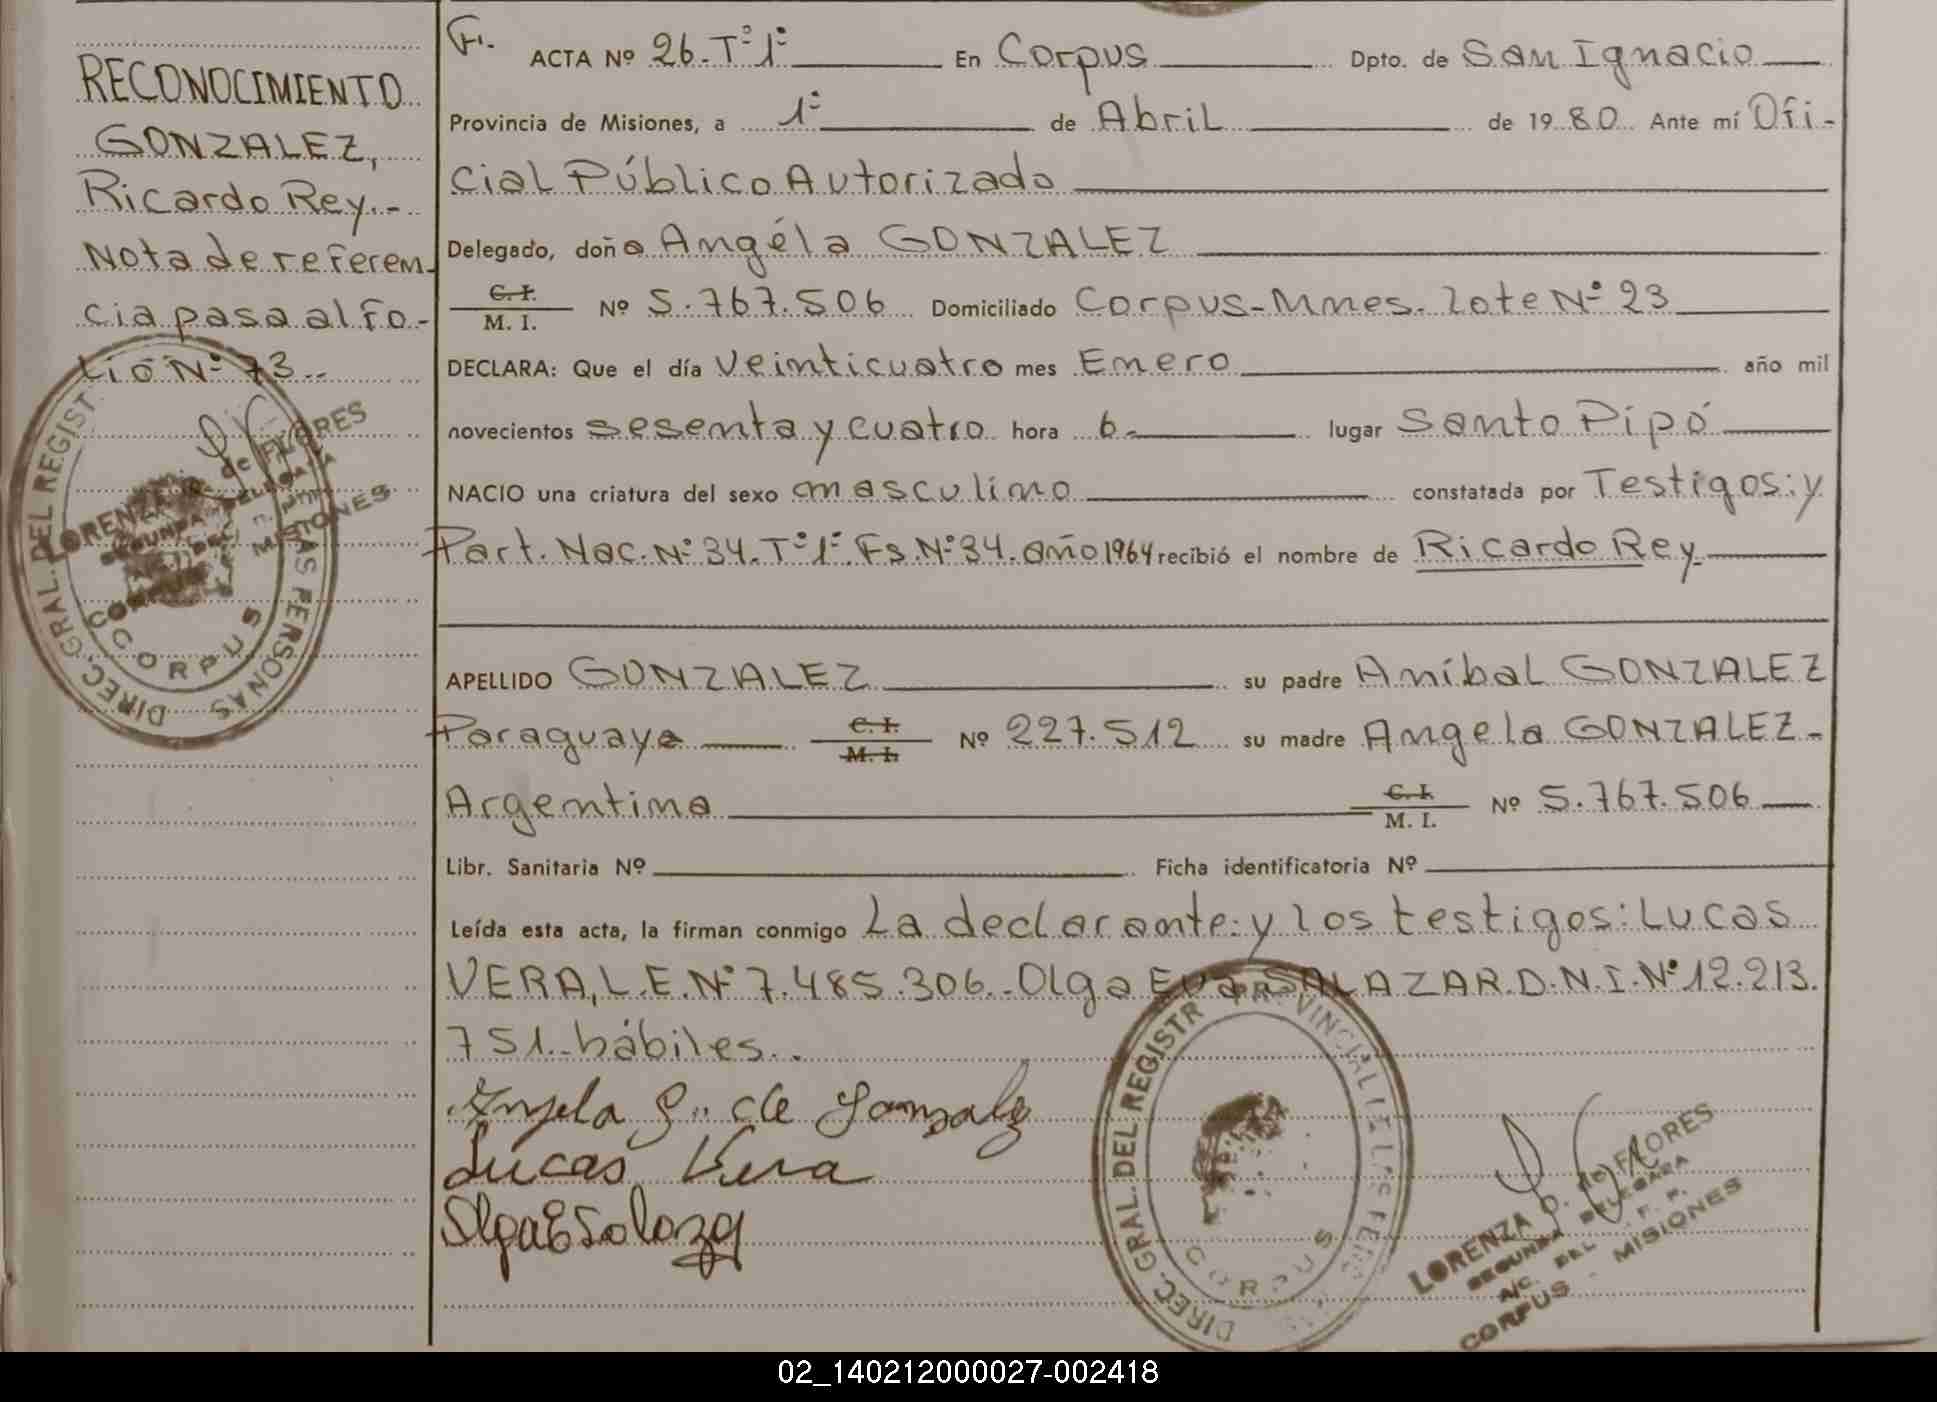 RECONOCIMIENTO
GONZALEZ,
Ricardo Rey.-
Nota de referen-
cia pasa al Fo-
lio Nº 73..
ACTA Nº 26. Tº 1º En Corpus Dpto. de San Ignacio
Provincia de Misiones, a 1º de Abril de 1980 Ante mí Ofi-
cial Público Autorizado
Delegado, doña Angéla GONZALEZ
C. I.
M. I. Nº 5.767.506 Domiciliado Corpus-Mnes. lote Nº 23
DECLARA: Que el día veinticuatro mes Enero año mil
novecientos sesenta y cuatro hora 6- lugar Santo Pipó
NACIO una criatura del sexo masculino constatada por Testigos: y
Part. Nac. Nº 34. Tº 1º. Fs. Nº 34. año 1964 recibió el nombre de Ricardo Rey
APELLIDO GONZALEZ su padre Aníbal GONZALEZ
Paraguaya C. I.
M. I. Nº 227.512 su madre Angela GONZALEZ-
Argentina C. I.
M. I. Nº 5.767.506
Libr. Sanitaria Nº Ficha identificatoria Nº
Leída esta acta, la firman conmigo La declarante: y los testigos: Lucas
VERA, L.E. Nº 7.485.306.- Olga Eva SALAZAR. D.N.I. Nº 12.213.
751.- hábiles..
Angela G. de Gonzalez
Lucas Vera
Olga E Salazar
DIREC. GRAL. DEL REGIST AS PERSONAS
CORPUS
LORENZA de FLORES
SEGUNDA DELEGADA
MISIONES
DIREC. GRAL. DEL REGISTR PR VINCIAL
CORPUS
LORENZA D. de FLORES
SEGUNDA DELEGADA
A/C. DEL R. P.
CORPUS - MISIONES
02_140212000027-002418